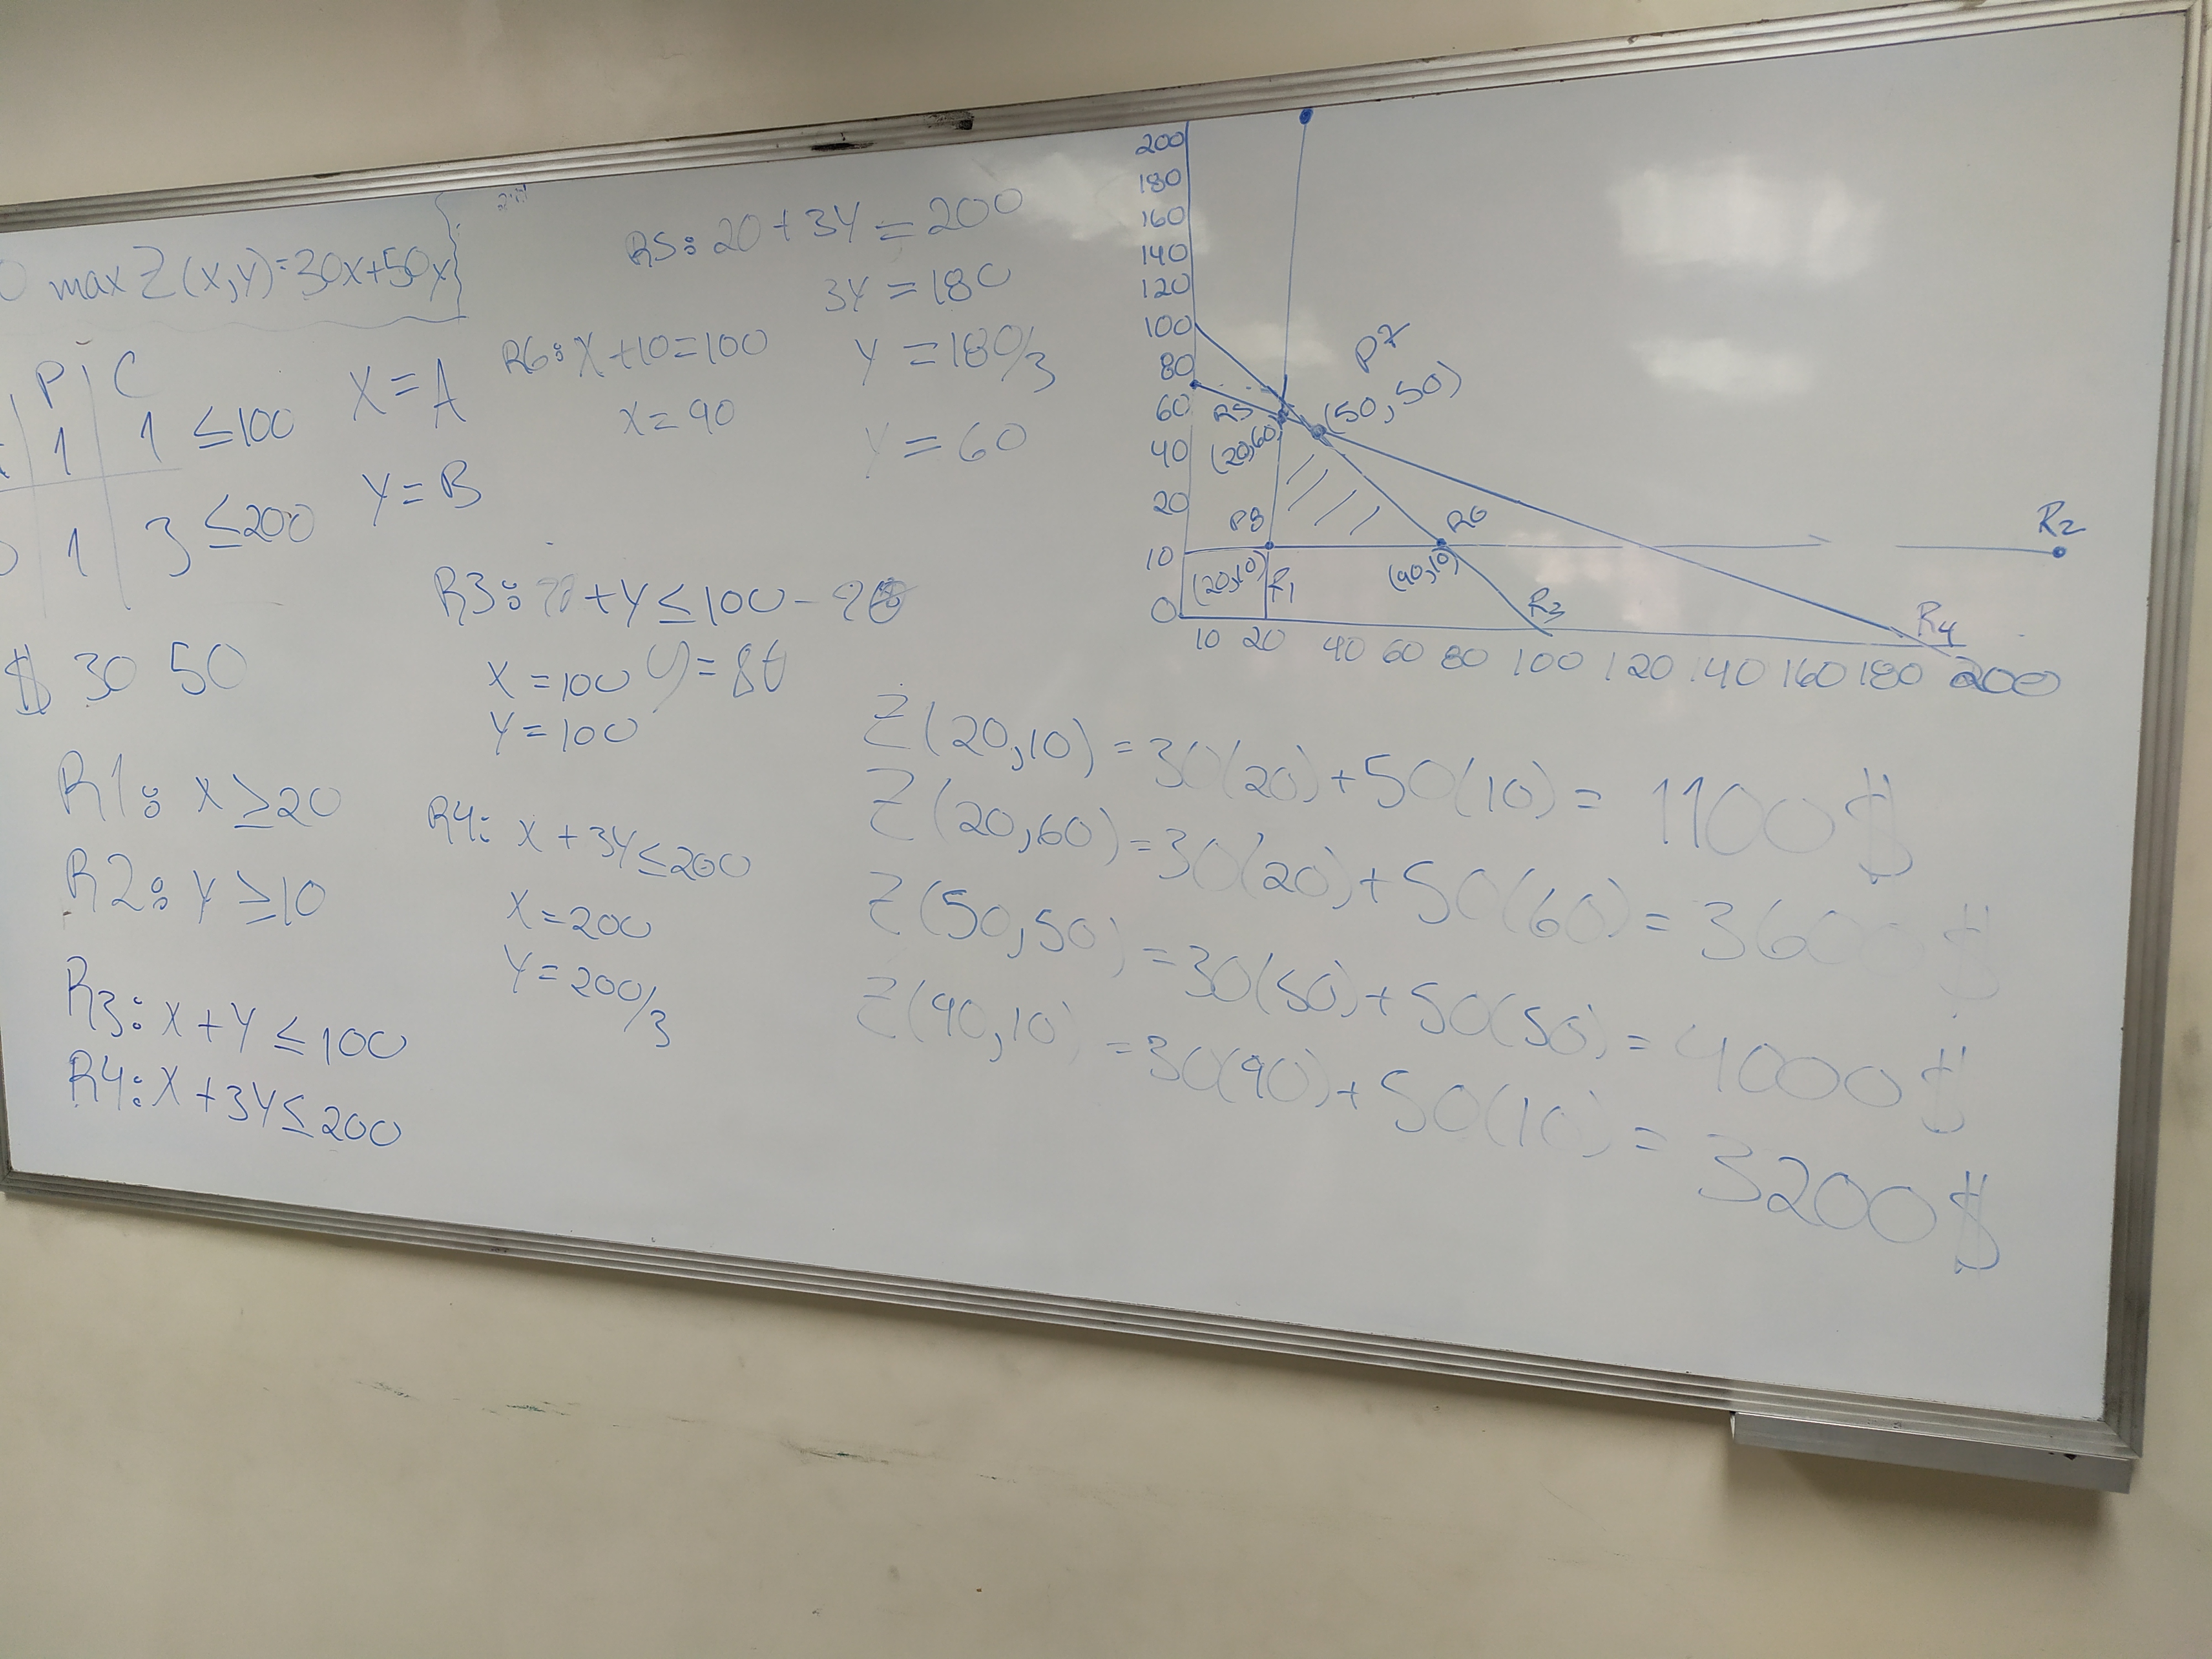 max Z(x,y)=30x+50y
P C
1 1 ≤100
1 3 ≤200
$ 30 50
X=A
Y=B
R1: x ≥20
R2: y ≥10
R3: x+y ≤ 100
R4: x+3y ≤ 200
R5: 20+3y = 200
3y = 180
y = 180/3
y = 60
R6: x+10=100
x= 90
+y ≤ 100-20
X=100 y=80
Y=100
R4: x + 3y ≤ 200
X=200
Y=200/3
200
180
160
140
120
100
80
60
40
20
10
0
10 20 40 60 80 100 120 140 160 180 200
P7
(50,50)
R5
(20,60)
P8
(20,10)
R1
R6
(90,10)
R2
R3
R4
Z(20,10) =30(20)+50(10) = 1100$
Z(20,60)=30(20)+50(60)=3600$
Z(50,50)=30(50)+50(50)=4000$
Z(90,10)=30(90)+50(10)=3200$